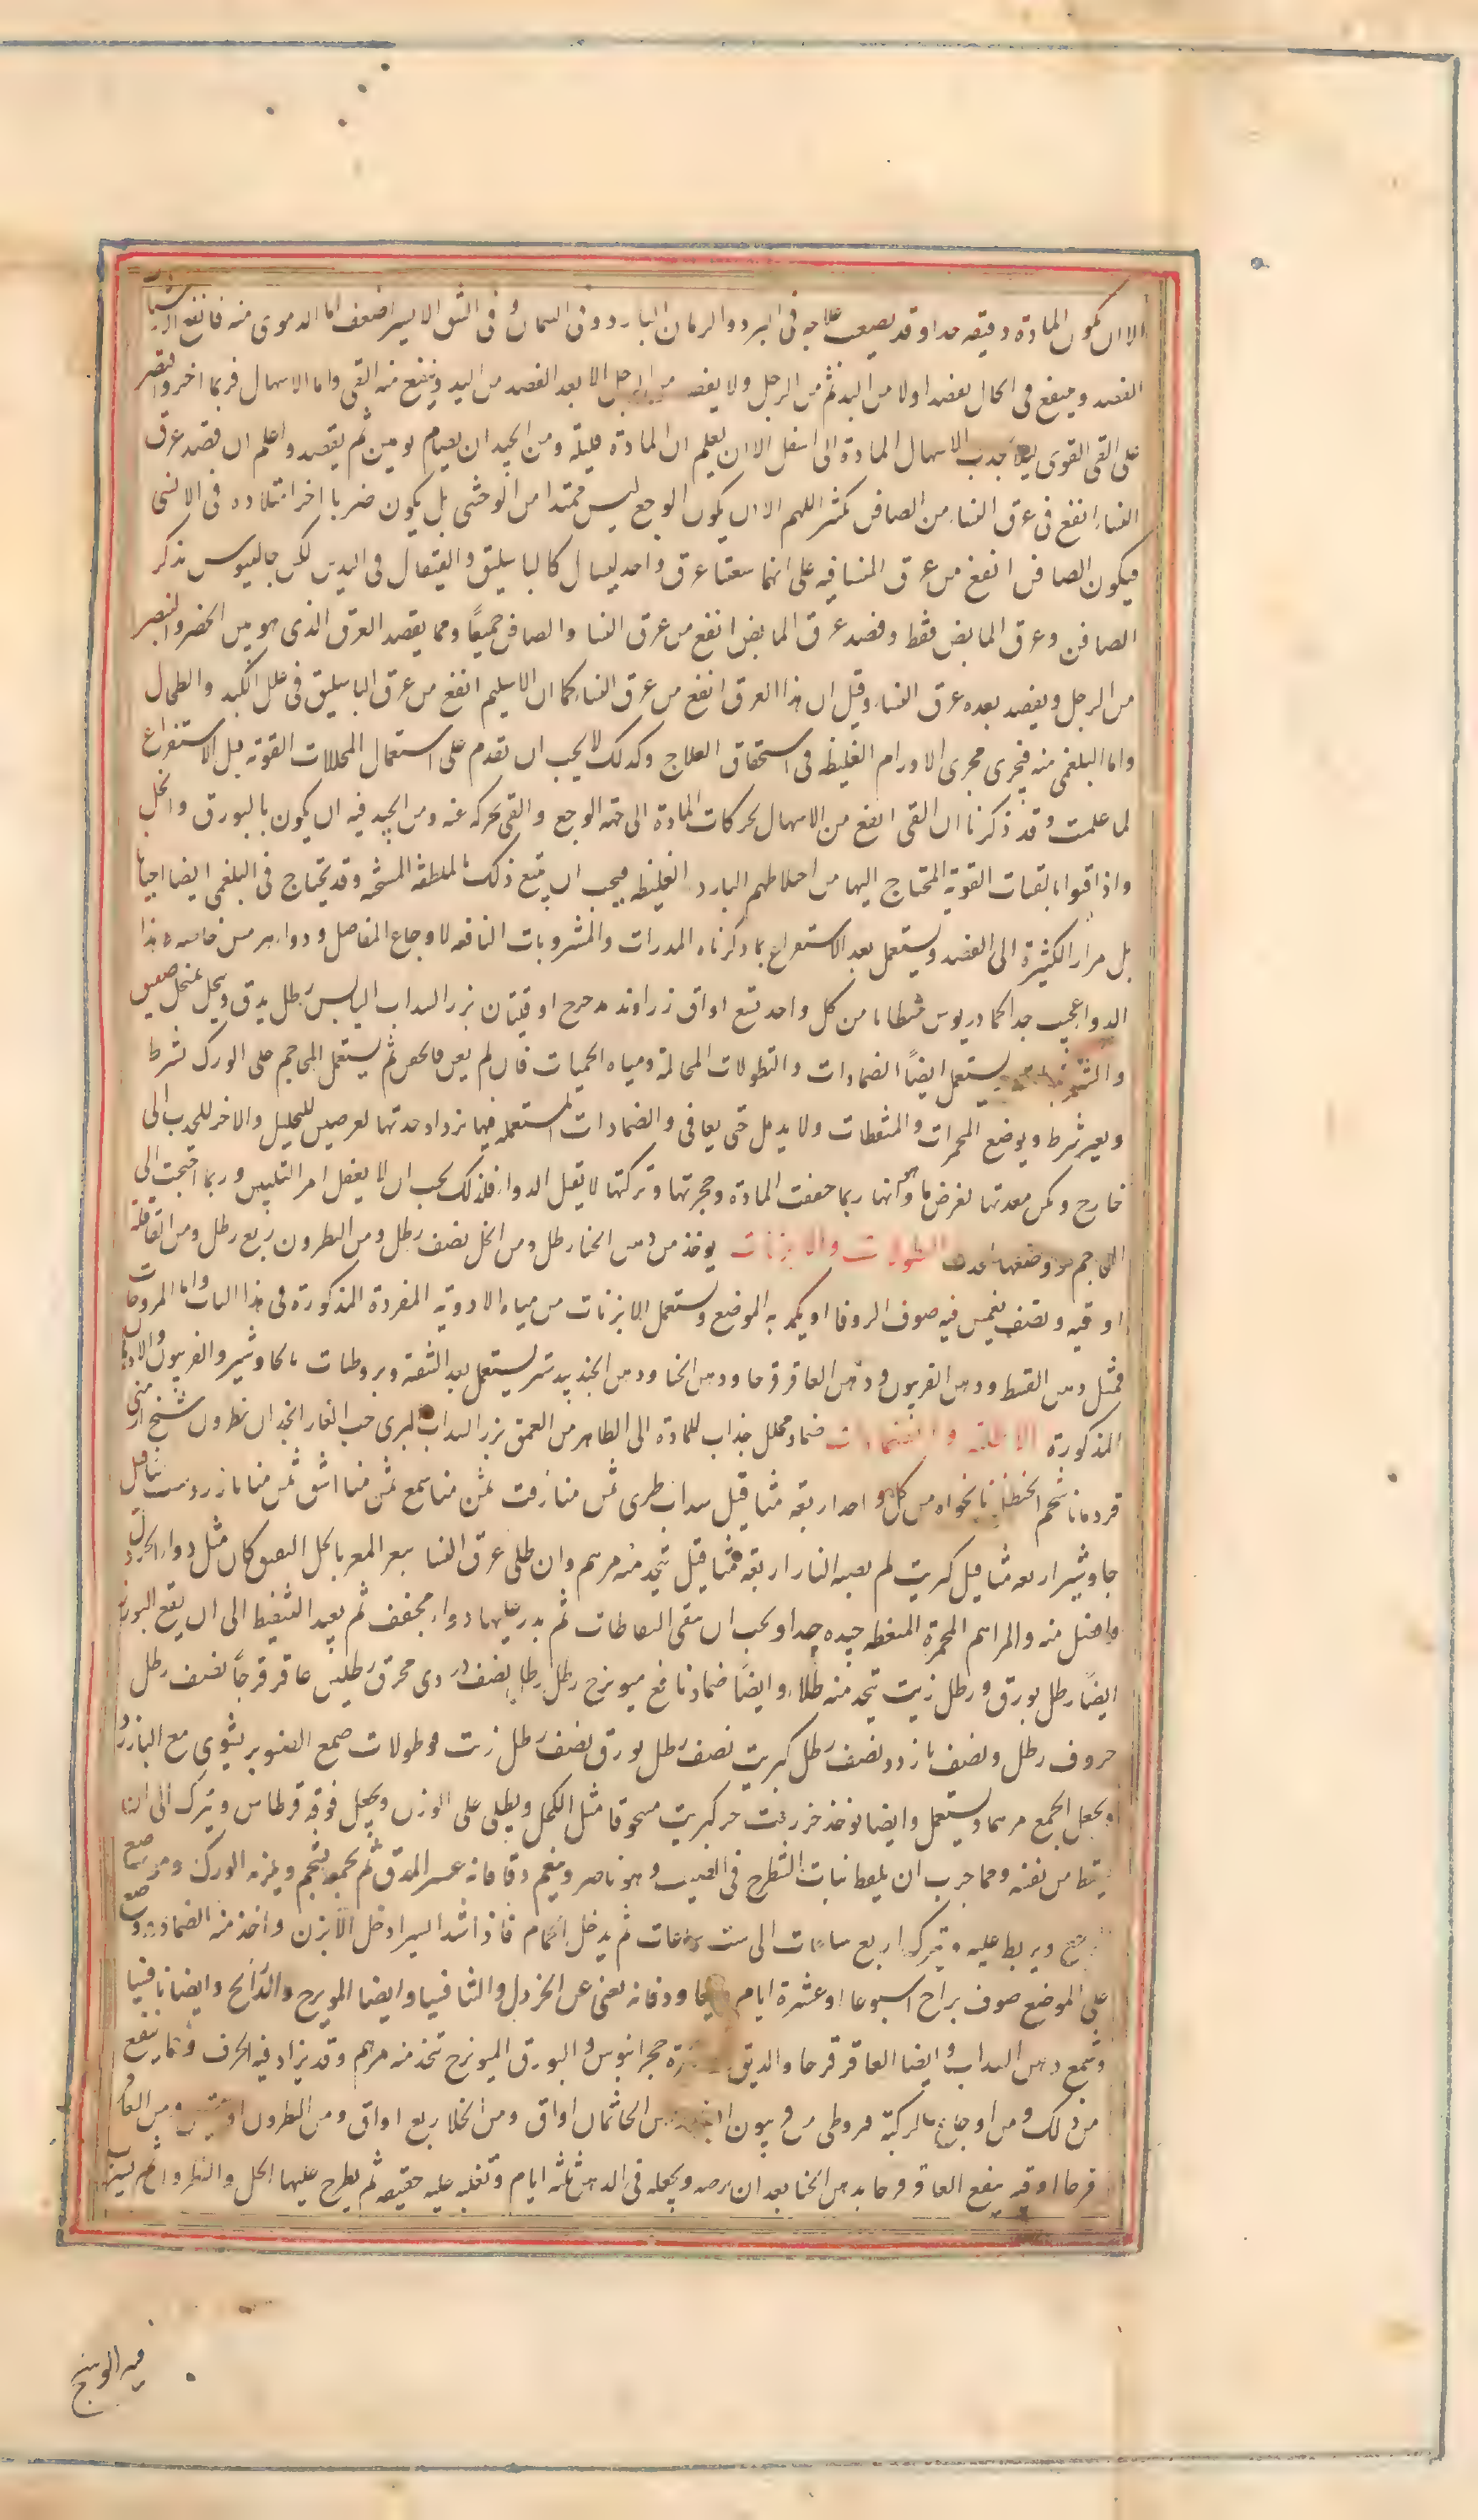 الا ان يكون المادة دقيقه جدا و قد يصعب علاجه فى البرد و الزمان البارد و فى السمان و فى الشق الايسر اضعف اما الدموى منه فانفع الاشياء
الفصد و ينفع فى الحال يفصد اولا من اليد ثم من الرجل و لا يفصد من الرجل الا بعد الفصد من اليد و ينفع منه القى و اما الاسهال فربما اخر و اقتصر
على القى القوى ليلا يجذب الاسهال المادة الى اسفل الا ان يعلم ان المادة قليلة و من الجيد ان يصام يومين ثم يفصد و اعلم ان فصد عرق
النساء انفع فى عرق النساء من الصافن بكثير اللهم الا ان يكون الوجع ليس ممتدا من الوحشى بل يكون ضربا اخر امتداده فى الانسى
فيكون الصافن انفع من عرق النسا فيه على انهما شعبتا عرق واحد ليسا كالباسليق و القيفال فى اليدين لكن جالينوس يذكر
الصافن و عرق المابض فقط و فصد عرق المابض انفع من عرق النسا و الصافن جميعًا و مما يفصد العرق الذى هو بين الخنصر و البنصر
من الرجل و يفصد بعده عرق النساء و قيل ان هذا العرق انفع من عرق النساء كما ان الاسليم انفع من عرق الباسليق فى علل الكبد و الطحال
و اما البلغمى منه فيجرى مجرى الاورام الغليظه فى استحقاق العلاج و كذلك لا يجب ان يقدم على استعمال المحللات القوية قبل الاستفراغ
لما علمت و قد ذكرنا ان القى انفع من الاسهال يحركات المادة الى جهة الوجع و القى يحركه عنه و من الجيد فيه ان يكون بالبورق و الخل
و اذا قيوا بالقيات القوية المحتاج اليها من اخلاطهم البارد الغليظه فيجب ان يتبع ذلك بالملطفه المسخنه و قد يحتاج فى البلغمى ايضا احيانا
بل مرارًا كثيرة الى الفصد و يستعمل بعد الاستفراغ بما ذكرناه المدرات و المشروبات النافعه لاوجاع المفاصل و دواء هرمس خاصه و هذا
الدوا عجيب جدا كمادريوس جنطيانا من كل واحد تسع اواق زراوند مدحرج اوقيتان بزر السداب اليابس رطل يدق و ينخل بمنخل صفيق
و الشربة يستعمل ايضًا الضمادات و النطولات المحللة و مياه الحميات فان لم يغن فالحقن ثم يستعمل المحاجم على الورك بشرط
و بغير شرط و يوضع المحمرات و المنفطات و لا يدمل حتى يعافى و الضمادات المستعمله فيها يزداد حدتها لغرضين للتحليل و الاخر للجذب الى
خارج و لكن معدتها لغرض ما و لانها ربما جففت المادة و حجرتها و تركتها لا تقبل الدواء فلذلك يجب ان لا يغفل امر التليين و ربما احتجت الى
المحاجم و وضعها النطولات و الابزنات يوخذ من دهن الحنا رطل و من الخل نصف رطل و من النطرون ربع رطل و من القاقلة
اوقيه و نصف يغمس فيه صوف الزوفا او يكمد به الموضع و يستعمل الابزنات من مياه الادوية المفردة المذكورة فى هذا الباب و اما المروخات
فمثل دهن القسط و دهن الفربيون و دهن العاقرقرحا و دهن الحنا و دهن الجندبيدستر يستعمل بعد التنقية و بروطيات بالجاوشير و الفربيون و الادهان
المذكورة الاطلية و الضمادات ضماد محلل جذاب للمادة الى الظاهر من العمق بزر السداب البرى حب الغار انجدان نطرون شيخ ارمنى
قردمانا شحم الحنظل نانخواه من كل واحد اربعة مثاقيل سداب طرى ثمن منا زفت ثمن منا سمع ثمن منا اشق ثمن منا بازرد ست مثاقيل
جاوشير اربعه مثاقيل كبريت لم يصبه النار اربعة مثاقيل يتخذ منه مرهم و ان طلى عرق النسا ببعر المعز بالخل الثقيف كان مثل دواء الخردل
و افضل منه و المراهم المحمرة المنفطه جيده جدا و يجب ان يفقى النفاطات ثم يذر عليها دواء مجفف ثم يعيد التنفيط الى ان يقع البرؤ
ايضًا رطل بورق و رطل زيت يتخذ منه طلاء و ايضًا ضماد نافع ميويزج رطل رطل نصف دردى محرق رطلين عاقرقرحا نصف رطل
حروف رطل و نصف بازرد نصف رطل كبريت نصف رطل بورق نصف رطل زيت و طولات صمغ الصنوبر يشوى مع البازرد
و يجعل الجميع مرهما و يستعمل و ايضا يوخذ جزء زفت جزء كبريت مسحوقا مثل الكحل و يطلى على الورك و يجعل فوقه قرطاس و يترك الى ان
يسقط من نفسه و مما جرب ان يلقط نبات الشيطرج فى الصيف و هو ناضر و ينعم دقا فانه عسر المدق ثم يجمع بشحم و يلزمه الورك و موضع
الوجع و يربط عليه و يترك اربع ساعات الى ست ساعات ثم يدخل الحمام فاذا اندا اليسير ادخل الابزن و اخذ منه الضماد و وضع
على الموضع صوف يراح اسبوعا او عشرة ايام و يعاود فانه يغنى عن الخردل و الثافسيا و ايضا الموبزج و الذرايح و ايضا ثافسيا
و شمع دهن السداب و ايضا العاقرقرحا و الدبق حجر اسيوس و البورق الميويزج تتخذ منه مرهم و قد يزاد فيه الحرف و مما ينفع
من ذلك و من اوجاع الركبة قيروطى من فربيون دهن الحنا ثمان اواق و من الخل اربع اواق و من النطرون و من العاقر
قرحا اوقيه ينقع العاقرقرحا بدهن الحنا بعد ان يرضه و يجعله فى الدهن ثلثه ايام و تغليه عليه خفيفه ثم يطرح عليها الخل و النطرون ثم يسير
فيه الوسخ